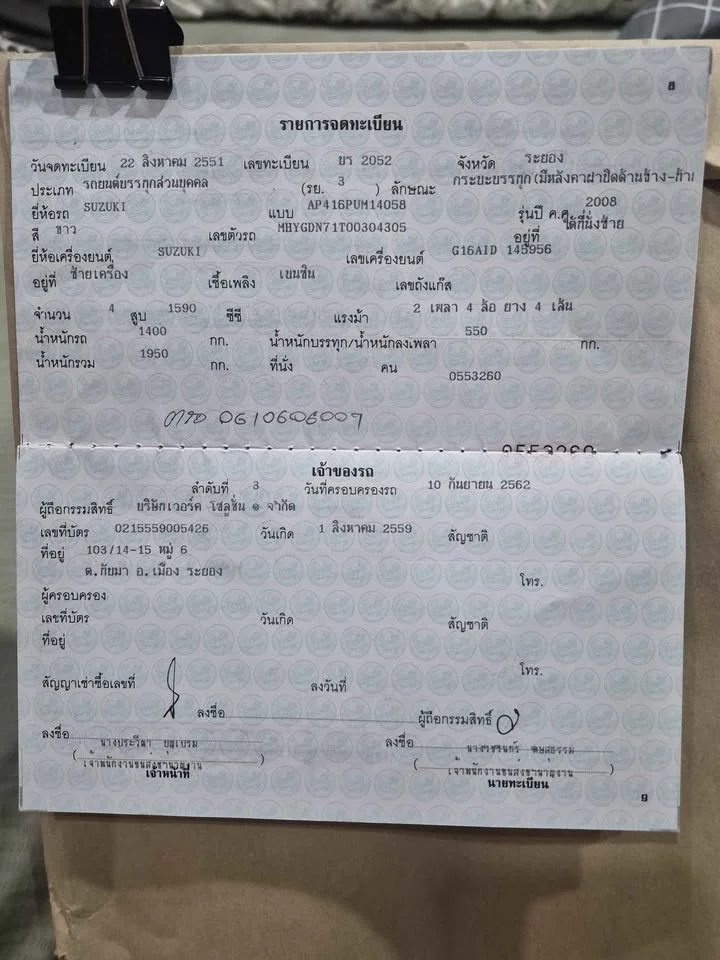 8
รายการจดทะเบียน
วันจดทะเบียน 22 สิงหาคม 2551 เลขทะเบียน ยร 2052 จังหวัด ระยอง
ประเภท รถยนต์บรรทุกส่วนบุคคล (รย. 3 ) ลักษณะ กระบะบรรทุก(มีหลังคาฝาปิดด้านข้าง-ท้าย
ยี่ห้อรถ SUZUKI แบบ AP416PUM14058 รุ่นปี ค.ศ. 2008
สี ขาว เลขตัวรถ MHYGDN71T00304305 อยู่ที่ ใต้ที่นั่งซ้าย
ยี่ห้อเครื่องยนต์ SUZUKI เลขเครื่องยนต์ G16AID 145956
อยู่ที่ ซ้ายเครื่อง เชื้อเพลิง เบนซิน เลขถังแก๊ส
จำนวน 4 สูบ 1590 ซีซี แรงม้า 2 เพลา 4 ล้อ ยาง 4 เส้น
น้ำหนักรถ 1400 กก. น้ำหนักบรรทุก/น้ำหนักลงเพลา 550 กก.
น้ำหนักรวม 1950 กก. ที่นั่ง คน 0553260
0610606007
0553260
เจ้าของรถ
ลำดับที่ 3 วันที่ครอบครองรถ 10 กันยายน 2562
ผู้ถือกรรมสิทธิ์ บริษัทเวอร์ค โซลูชั่น ๑ จำกัด
เลขที่บัตร 0215559005426 วันเกิด 1 สิงหาคม 2559 สัญชาติ
ที่อยู่ 103/14-15 หมู่ 6
ต.ทับมา อ.เมือง ระยอง โทร.
ผู้ครอบครอง
เลขที่บัตร วันเกิด สัญชาติ
ที่อยู่
โทร.
สัญญาเช่าซื้อเลขที่ ลงวันที่
ลงชื่อ ผู้ถือกรรมสิทธิ์
ลงชื่อ ลงชื่อ
(เจ้าพนักงานขนส่งชำนาญงาน) (เจ้าพนักงานขนส่งชำนาญงาน)
เจ้าหน้าที่ นายทะเบียน
9